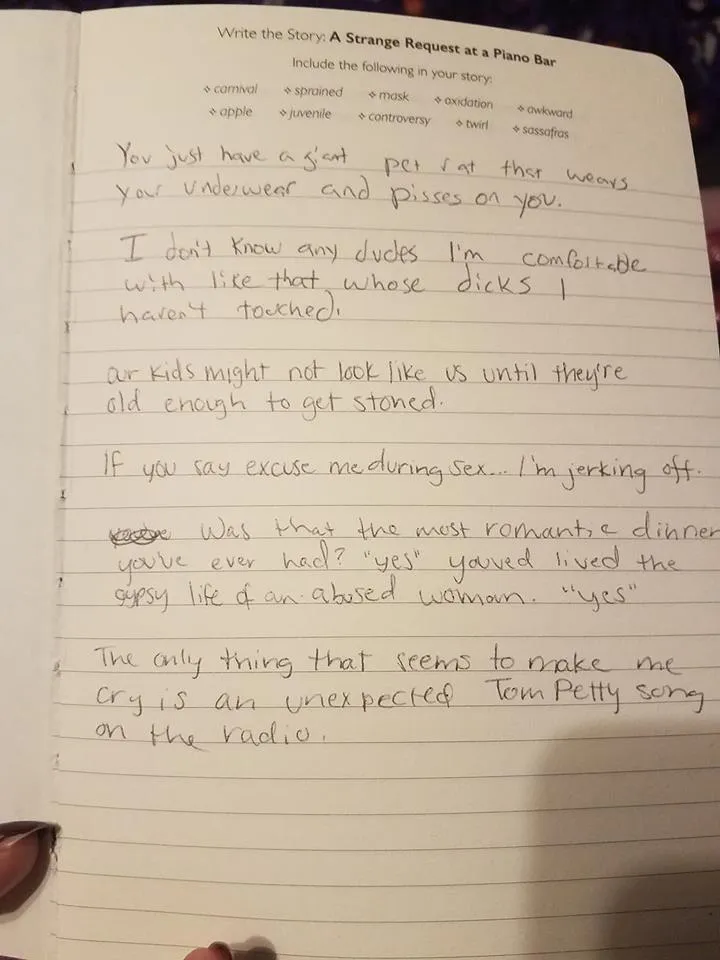 Write the Story: A Strange Request at a Piano Bar
Include the following in your story:
❖ carnival ❖ sprained ❖ mask ❖ oxidation ❖ awkward
❖ apple ❖ juvenile ❖ controversy ❖ twirl ❖ sassafras
You just have a giant pet rat that wears
your underwear and pisses on you.
I don't know any dudes I'm comfortable
with like that whose dicks I
haven't touched.
our kids might not look like us until they're
old enough to get stoned.
If you say excuse me during sex... I'm jerking off.
Was that the most romantic dinner
you've ever had? "yes" youved lived the
gypsy life of an abused woman. "yes"
The only thing that seems to make me
cry is an unexpected Tom Petty song
on the radio.